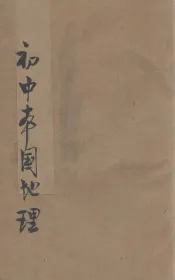 初中本国地理